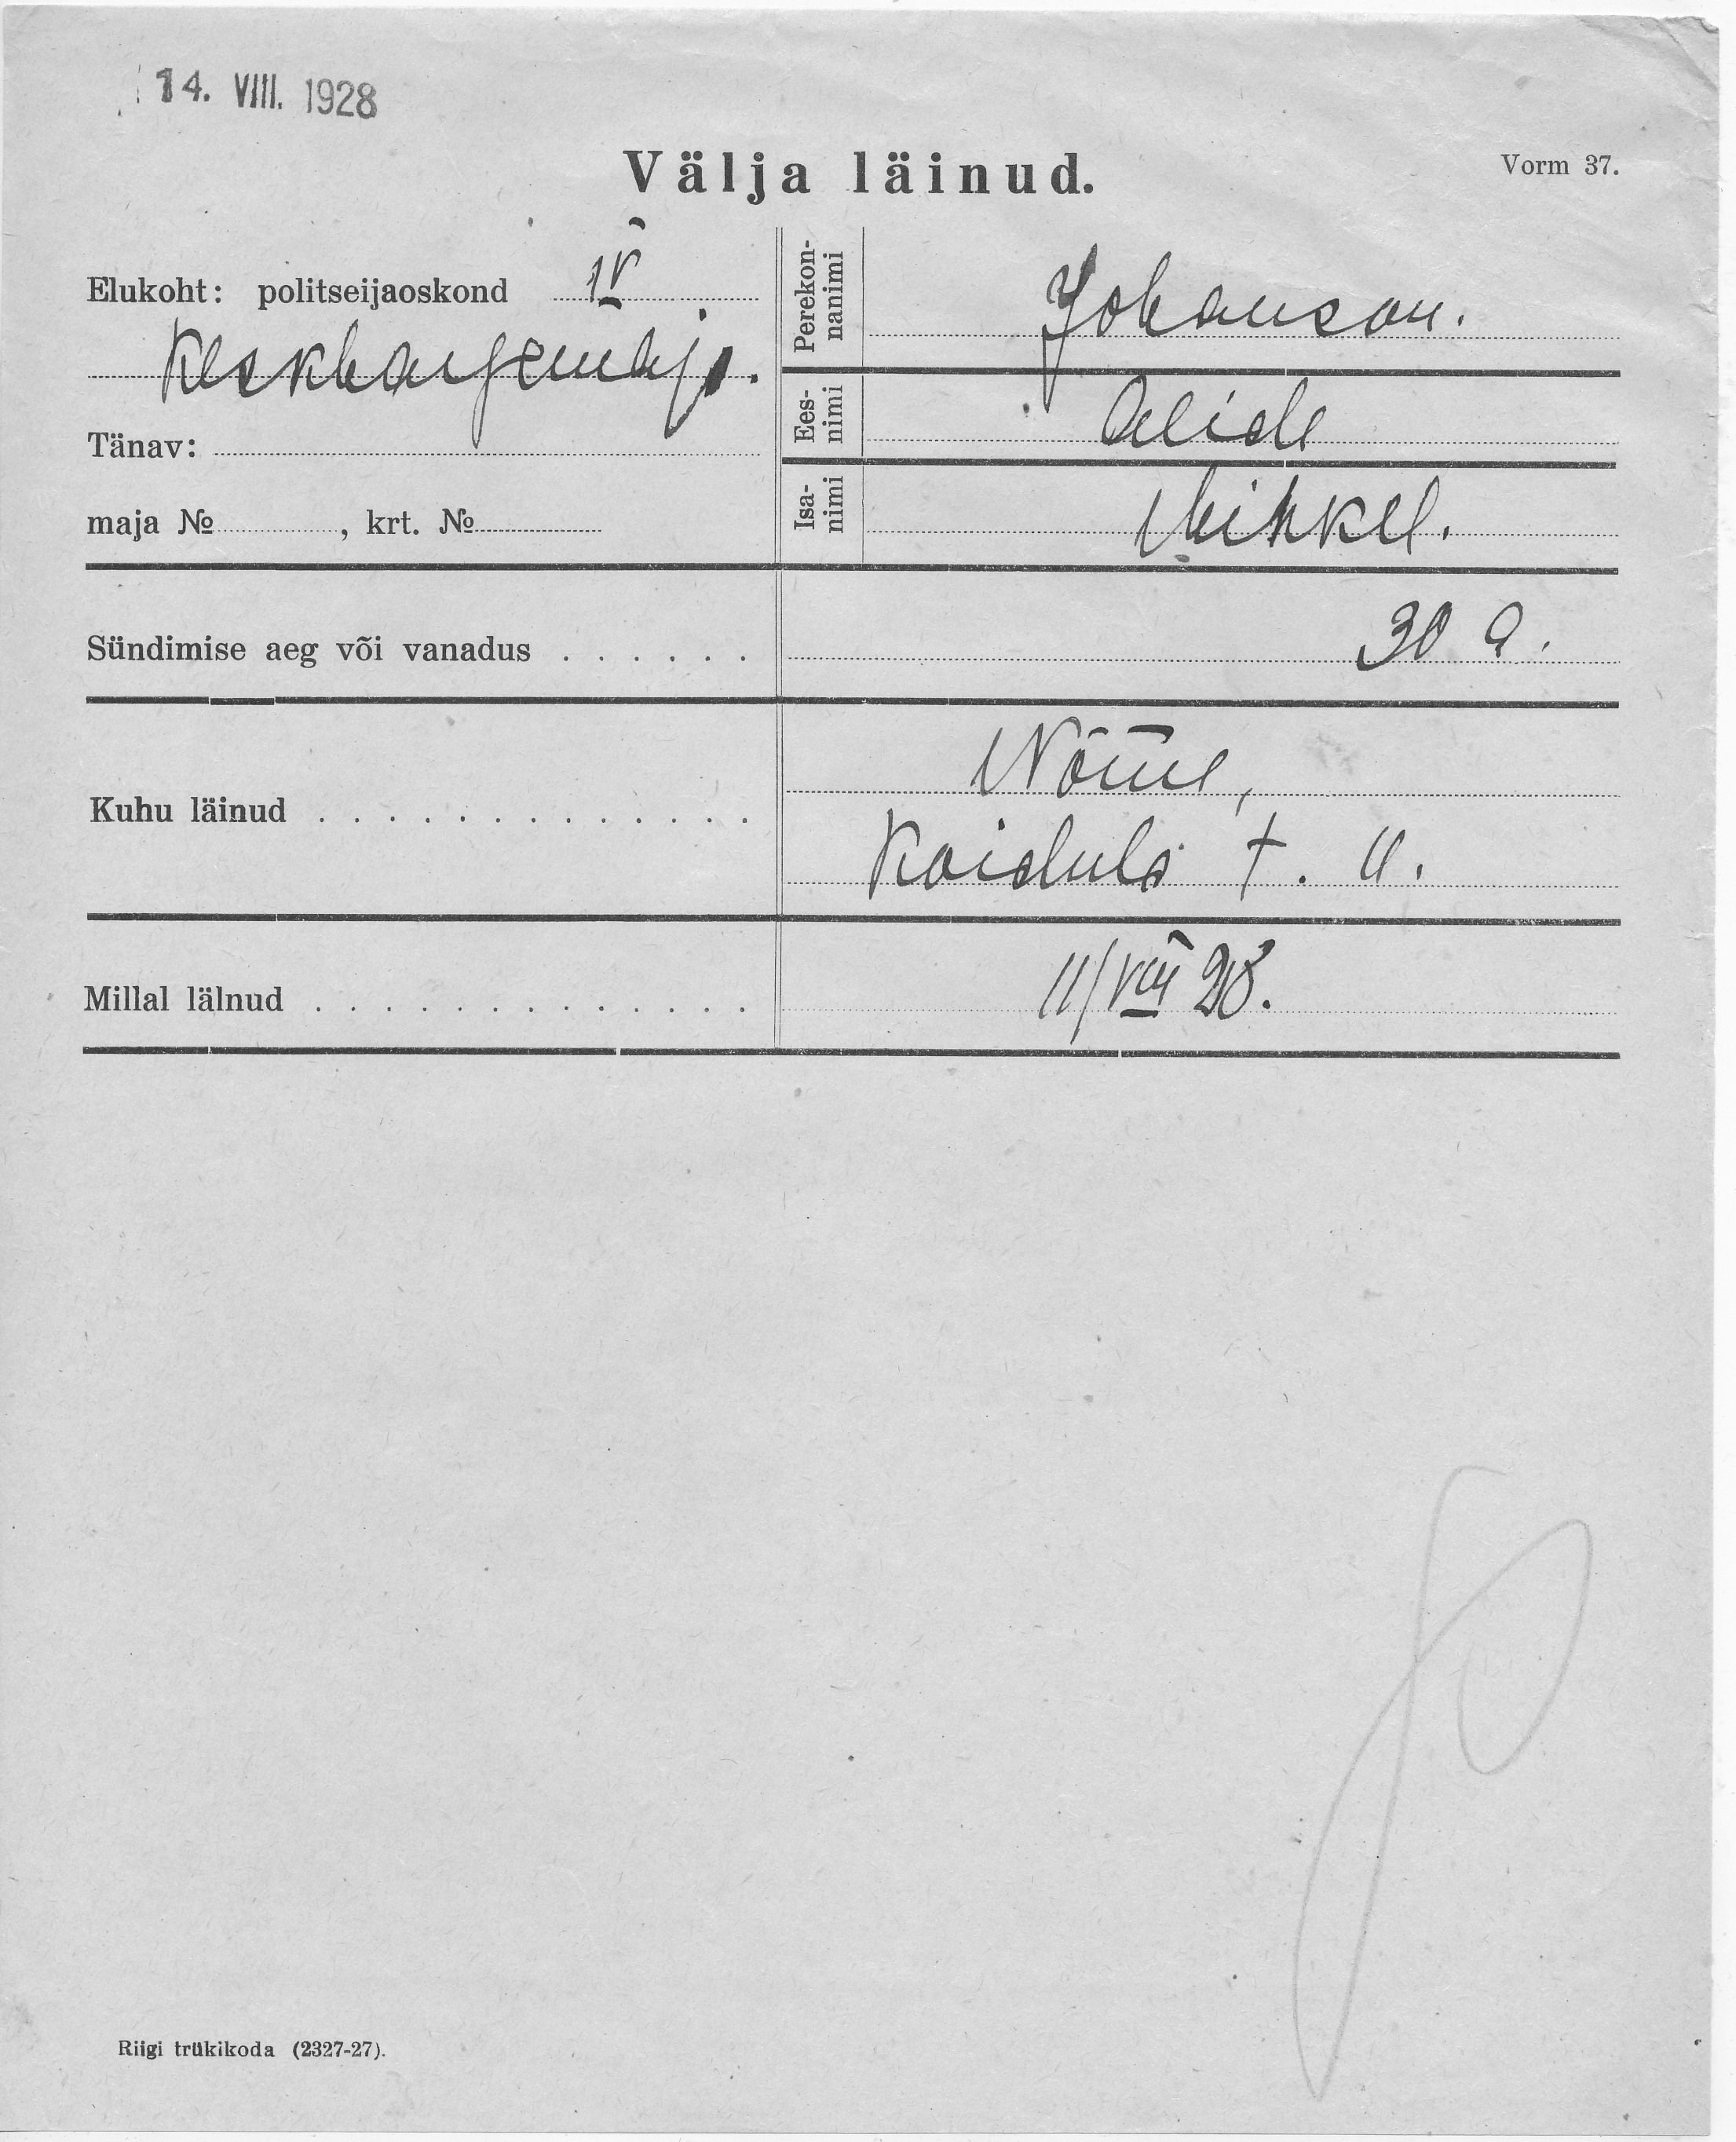 14. VIII. 1928
Välja läinud.
Vorm 37.
Elukoht: politseijaoskond IV
Keskhaigemaja.
Tänav:
maja №, krt. №
Perekon-
nanimi
Johanson.
Ees-
nimi
Alide
Isa-
nimi
Mihkel.
Sündimise aeg või vanadus . . . . . .
30 a.
Kuhu läinud . . . . . . . . . . . . .
Nõmme,
Koidula t. 11.
Millal lälnud . . . . . . . . . . . . .
11/VIII 28.
Riigi trükikoda (2327-27).